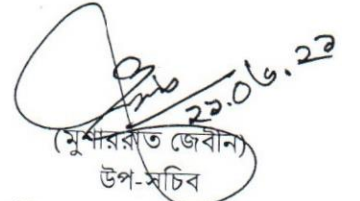 ২১.০৬.২১
(মুশাররাত জেবীন)
উপ-সচিব